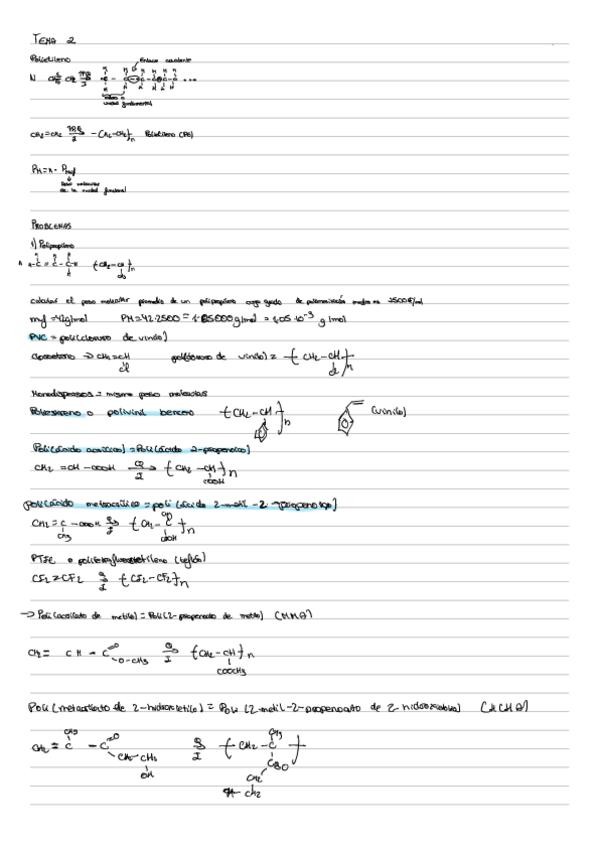 TEMA 2
Polietileno
Enlace covalente
N CH2 = CH2
unidad fundamental
CH2=CH2 -[CH2-CH2]n Polietileno (PE)
PM=n·Pmuf
Peso molecular
de la unidad funcional
PROBLEMAS
1) Polipropileno
[CH2-CH]n
CH3
calcular el peso molecular promedio de un polipropileno cuyo grado de polimerización medio es 2500
muf=42g/mol PM=42·2500 = 105000g/mol = 1,05·10⁻³ g/mol
PVC = poli(cloruro de vinilo)
Cloroeteno → CH2=CH poli(cloruro de vinilo) = [CH2-CH]n
Cl Cl
Monodispersos = mismo peso molecular
Poliestireno o polivinil benceno [CH2-CH]n (vinilo)
Poli(ácido acrílico) = Poli(ácido 2-propenoico)
CH2 =CH-COOH [CH2-CH]n
COOH
Poli(ácido metacrílico = poli (ácido 2-metil-2-propenoico)
CH2=C-COOH [CH2-C]n
CH3 COOH
PTFE o politetrafluoroetileno (teflón)
CF2=CF2 [CF2-CF2]n
→ Poli(acrilato de metilo) = Poli(2-propenoato de metilo) (MMA)
CH2= CH - C =O [CH2-CH]n
O-CH3 COOCH3
Poli (metacrilato de 2-hidroxietilo) = Poli (2-metil-2-propenoato de 2-hidroxietilo)
CH3 CH3
CH2 = C -C =O [CH2-C]
CH2-CH2
OH
CH2